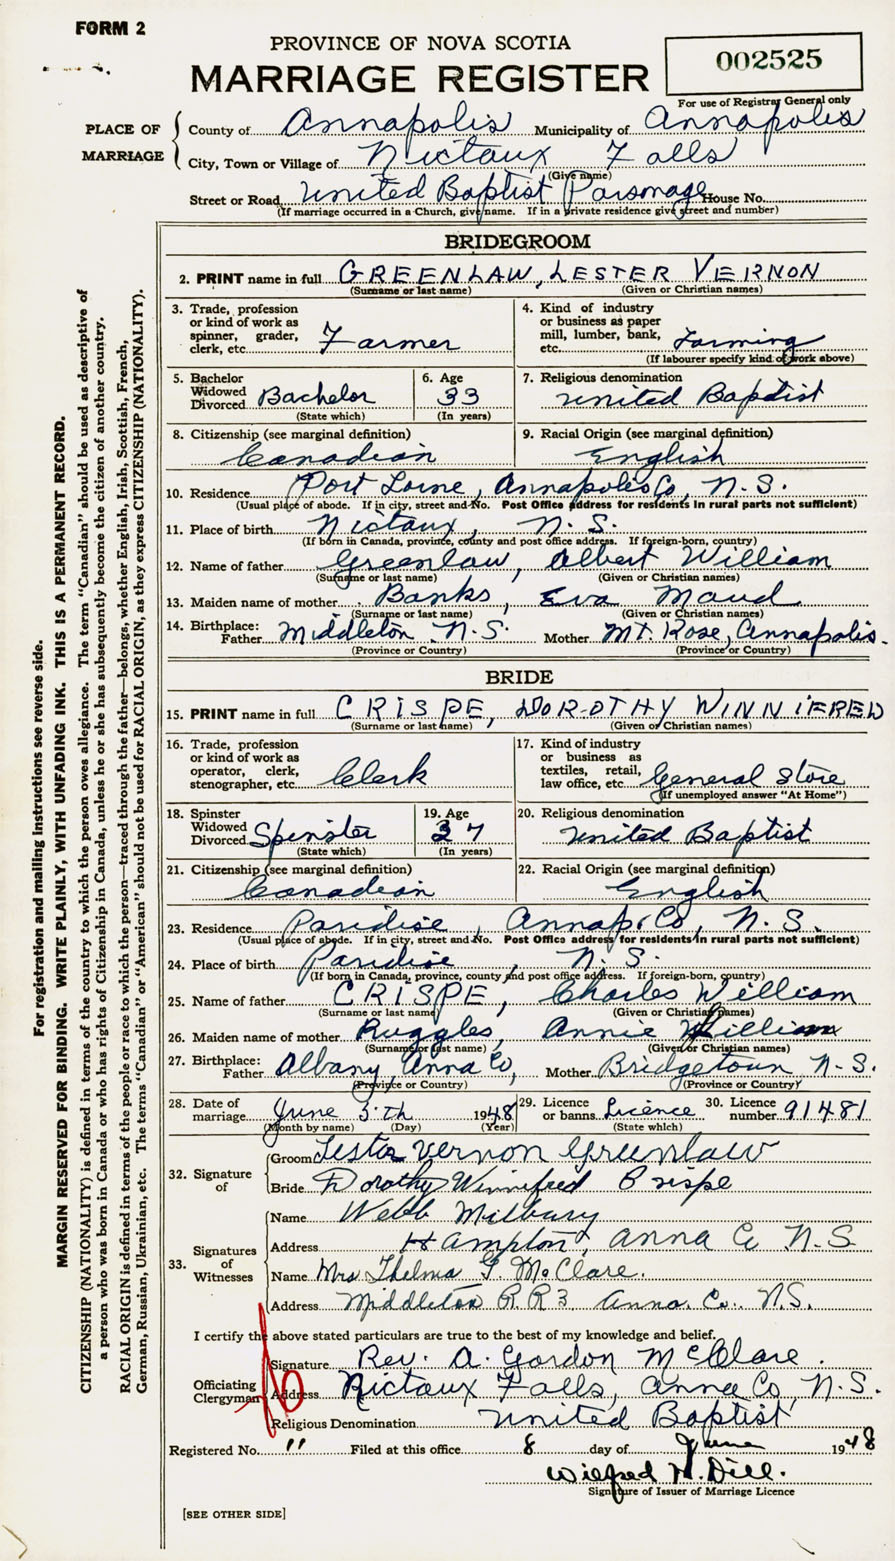 FORM 2
PROVINCE OF NOVA SCOTIA
MARRIAGE REGISTER
002525
For use of Registrar General only
PLACE OF MARRIAGE
County of Annapolis Municipality of Annapolis
City, Town or Village of Nictaux Falls
(Give name)
Street or Road United Baptist Parsonage House No.
(If marriage occurred in a Church, give name. If in a private residence give street and number)
BRIDEGROOM
2. PRINT name in full GREENLAW, LESTER VERNON
(Surname or last name) (Given or Christian names)
3. Trade, profession or kind of work as spinner, grader, clerk, etc. Farmer
4. Kind of industry or business as paper mill, lumber, bank, etc. Farming
(If labourer specify kind of work above)
5. Bachelor Widowed Divorced Bachelor
(State which)
6. Age 33
(In years)
7. Religious denomination United Baptist
8. Citizenship (see marginal definition) Canadian
9. Racial Origin (see marginal definition) English
10. Residence Port Lorne, Annapolis Co, N.S.
(Usual place of abode. If in city, street and No. Post Office address for residents in rural parts not sufficient)
11. Place of birth Nictaux, N.S.
(If born in Canada, province, county and post office address. If foreign-born, country)
12. Name of father Greenlaw, Albert William
(Surname or last name) (Given or Christian names)
13. Maiden name of mother Banks, Eva Maud
(Surname or last name) (Given or Christian names)
14. Birthplace: Father Middleton N.S. Mother Mt. Rose, Annapolis.
(Province or Country) (Province or Country)
BRIDE
15. PRINT name in full CRISPE, DOROTHY WINNIFRED
(Surname or last name) (Given or Christian names)
16. Trade, profession or kind of work as operator, clerk, stenographer, etc. Clerk
17. Kind of industry or business as textiles, retail, law office, etc. General Store
(If unemployed answer "At Home")
18. Spinster Widowed Divorced Spinster
(State which)
19. Age 37
(In years)
20. Religious denomination United Baptist
21. Citizenship (see marginal definition) Canadian
22. Racial Origin (see marginal definition) English
23. Residence Paridise, Annap. Co, N.S.
(Usual place of abode. If in city, street and No. Post Office address for residents in rural parts not sufficient)
24. Place of birth Paridise, N.S.
(If born in Canada, province, county and post office address. If foreign-born, country)
25. Name of father CRISPE, Charles William
(Surname or last name) (Given or Christian names)
26. Maiden name of mother Ruggles, Annie
(Surname or last name) (Given or Christian names)
27. Birthplace: Father Albany Anna Co, Mother Bridgetown N.S.
(Province or Country) (Province or Country)
28. Date of marriage June 5th 1948
(Month by name) (Day) (Year)
29. Licence or banns Licence
(State which)
30. Licence number 91481
32. Signature of
Groom Lester Vernon Greenlaw
Bride Dorothy Winnifred Crispe
33. Signatures of Witnesses
Name Webb Milbury
Address Hampton, Anna Co N.S.
Name Mrs Thelma G. McClare.
Address Middleton R.R 3 Anna. Co. N.S.
I certify the above stated particulars are true to the best of my knowledge and belief.
Officiating Clergyman
Signature Rev. A. Gordon McClare.
Address Nictaux Falls, Anna Co, N.S.
Religious Denomination United Baptist
Registered No. " Filed at this office 8 day of June 1948
Wilfred H. Dill.
Signature of Issuer of Marriage Licence
[SEE OTHER SIDE]
For registration and mailing instructions see reverse side.
MARGIN RESERVED FOR BINDING. WRITE PLAINLY, WITH UNFADING INK. THIS IS A PERMANENT RECORD.
CITIZENSHIP (NATIONALITY) is defined in terms of the country to which the person owes allegiance. The term "Canadian" should be used as descriptive of
a person who was born in Canada or who has rights of Citizenship in Canada, unless he or she has subsequently become the citizen of another country.
RACIAL ORIGIN is defined in terms of the people or race to which the person—traced through the father—belongs, whether English, Irish, Scottish, French,
German, Russian, Ukrainian, etc. The terms "Canadian" or "American" should not be used for RACIAL ORIGIN, as they express CITIZENSHIP (NATIONALITY).